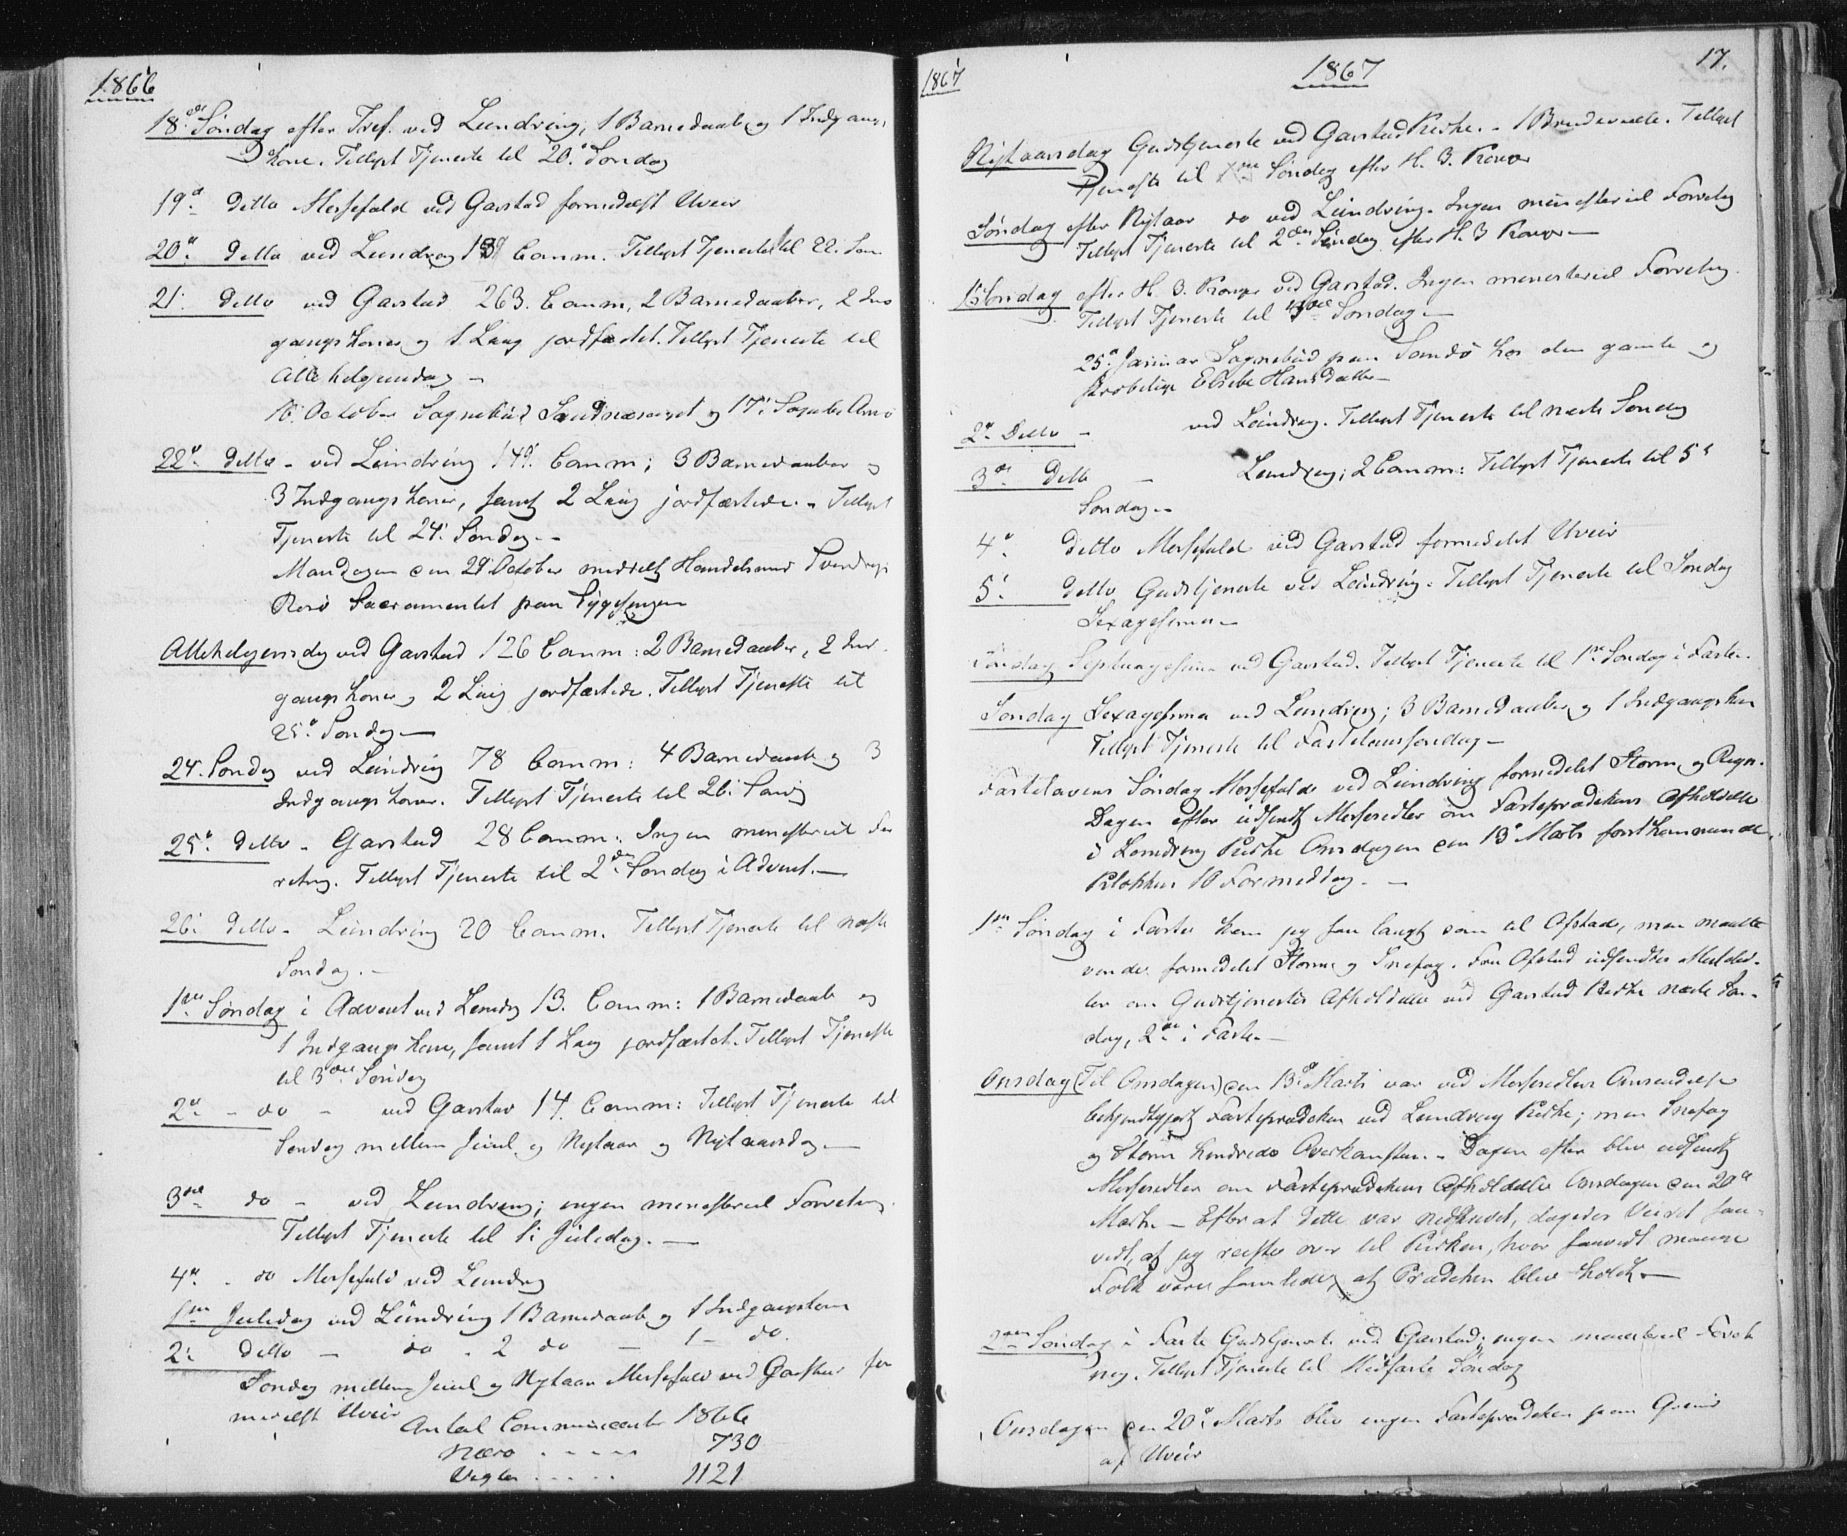 1866
18de Søndag efter Tref. ved Lundring, 1 Barnedaab og 1 Indgangs
kone. Tillyst Tjeneste til 20de Søndag
19de ditto Messefald ved Garstad formedelst Uveir
20de ditto ved Lundring Comm. Tillyst Tjeneste til 22. Søn
21. ditto ved Garstad 263. Comm, 2 Barnedaaber, 2 Ind
gangskoner og 1 Laag jordfæstet. Tillyst Tjeneste til
Allehelgensdag –
16. October Sognebud og 17. Arnø
22de ditto – ved Lundring 149. Comm; 3 Barnedaaber og
3 Indgangskoner, samt 2 Liig jordfæstede. – Tillyst
Tjeneste til 24. Søndag. –
Mandagen den 29 October meddelt Handelsmand Sverdrup
Risø Sacramentet paa Sygesengen
Allehelgensdag ved Garstad 126 Comm: 2 Barnedaaber, 2 Ind
gangskoner, 2 Liig jordfæstede. Tillyst Tjeneste til
25de Søndag –
24. Søndag ved Lundring 78 Comm: 4 Barnedaab og 3
Indgangskoner. Tillyst Tjeneste til 26. Søndag
25de ditto – Garstad 28 Comm: Ingen ministeriel For
retng. Tillyst Tjeneste til 2den Søndag i Advent. –
26. ditto – Lundring 20 Comm. Tillyst Tjeneste til næste
Søndag. –
1ste Søndag i Advent ved Lundrg 13. Comm: 1 Barnedaab og
1 Indgangskone, samt 1 Laag jordfæstet. Tillyst Tjeneste
til 3die Søndag
2den – do – ved Garstad 14. Comm: Tillyst Tjeneste til
Søndag mellem Juul og Nytaar og Nytaarsdag. –
3die do – ved Lundring; ingen ministeriel Forretng.
Tillyst Tjeneste til 1. Juledag. –
4de – do Messefald ved Lundrg
1ste Juledag ved Lundring 1 Barnedaab og 1 Indgangskone
2. ditto – do – 2 do – 1 – do.
Søndag mellem Juul og Nytaar Messefald ved Garstad for
medelst Uveir
Antal Communicanter 1866
Nærø . . . . . 730
Vigten . . . . . 1121
1867
1867
17.
Nytaarsdag Gudstjeneste ved Garstad Kirke. – 1 Brudevielse. Tillyst
Tjeneste til Søndag efter H. 3. Konger
Søndag efter Nytaar do ved Lundring. Ingen ministeriel Forretng
Tillyst Tjeneste til 2den Søndag efter H. 3 Konger –
1. Søndag efter H. 3. Konger ved Garstad. Ingen ministeriel Forretng.
Tillyst Tjeneste til Søndag –
25de Januar Sognebud paa Sandø hos den gamle og
skrøbelige Elsebe Hansdatter –
2den Ditto – ved Lundring. Tillyst Tjeneste til næste Søndag
3die ditto – Lundring; 2 Comm: Tillyst Tjeneste til 5te
Søndag. –
4de ditto Messefald ved Garstad formedelst Uveir
5te ditto Gudstjeneste ved Lundring. Tillyst Tjeneste til Søndag
Sexagesima –
Søndag Septuagesima ved Garstad. Tillyst Tjeneste til 1ste Søndag i Faste.
Søndag Sexagesima ved Lundring; 3 Barnedaaber og 1 Indgangskone
Tillyst Tjeneste til Fastelavnssøndag –
Fastelavens Søndag Messefald ved Lundring formedelst Storm og Regn.
Dagen efter udsendt Messesedler om Fasteprædikens Afholdelse
i Lundring Kirke Onsdagen den 13de Marts førstkommende,
Klokken 10 Formiddag. –
1ste Søndag i Faste kom jeg saa langt som til Ofstad, men maatte
vende formedelst Storm og Snefog. Fra Ofstad udsendtes Messeseд-
ler om Gudstjenestes Afholdelse ved Garstad Kirke næste Søn-
dag, 2den i Faste. –
Onsdag (Til Onsdagen) den 13de Marts var ved Messesedlers Omsendelse
bekjendtgjort Fasteprædiken ved Lundring Kirke; men Snefog
og Storm hindrede Overkomsten. – Dagen efter blev udsendt
Messesedler om Fasteprædikens Afholdelse Onsdagen den 20de
Marts. – Efter at dette var nedskrevet, Veiret saa-
vidt, at jeg reiste over til Kirken, hvor saavidt mange
Folk vare samlede, at Prædiken blev holdt. –
2den Søndag i Faste Gudstjeneste ved Garstad; ingen ministeriel Forret
ning. Tillyst Tjeneste til Midfaste Søndag
Onsdagen den 20de Marts blev ingen Fasteprædiken paa Grund
af Uveir